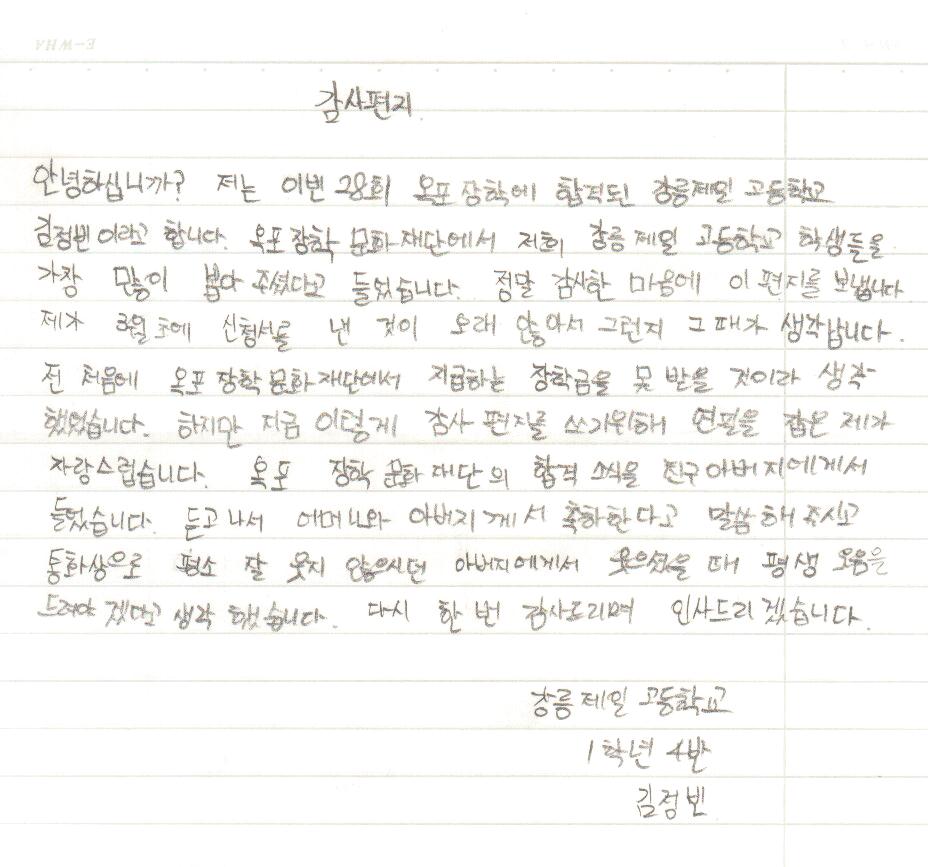 E-WHA
감사편지.
안녕하십니까? 저는 이번 28회 옥포 장학에 합격된 강릉제일 고등학교
김정빈 이라고 합니다. 옥포 장학 문화 재단에서 저희 강릉 제일 고등학교 학생들을
가장 많이 뽑아 주셨다고 들었습니다. 정말 감사한 마음에 이 편지를 보냅니다
제가 3월 초에 신청서를 낸 것이 오래 않아서 그런지 그 때가 생각납니다.
전 처음에 옥포 장학 문화 재단에서 지급하는 장학금을 못 받을 것이라 생각
했었습니다. 하지만 지금 이렇게 감사 편지를 쓰기위해 연필을 잡은 제가
자랑스럽습니다. 옥포 장학 문화 재단의 합격 소식을 친구 아버지에게서
들었습니다. 듣고 나서 어머니와 아버지 께서 축하한다고 말씀 해 주시고
통화상으로 평소 잘 웃지 않으시던 아버지에게서 웃으셨을 때 평생 웃음을
드려야 겠다고 생각 했습니다. 다시 한 번 감사드리며 인사드리겠습니다.
강릉 제일 고등학교
1학년 4반
김정빈